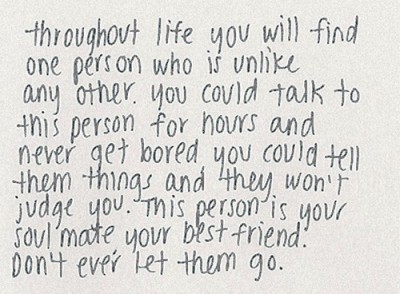 throughout life you will find
one person who is unlike
any other. you could talk to
this person for hours and
never get bored you could tell
them things and they won't
judge you. This person is your
soul mate your best friend.
Don't ever let them go.